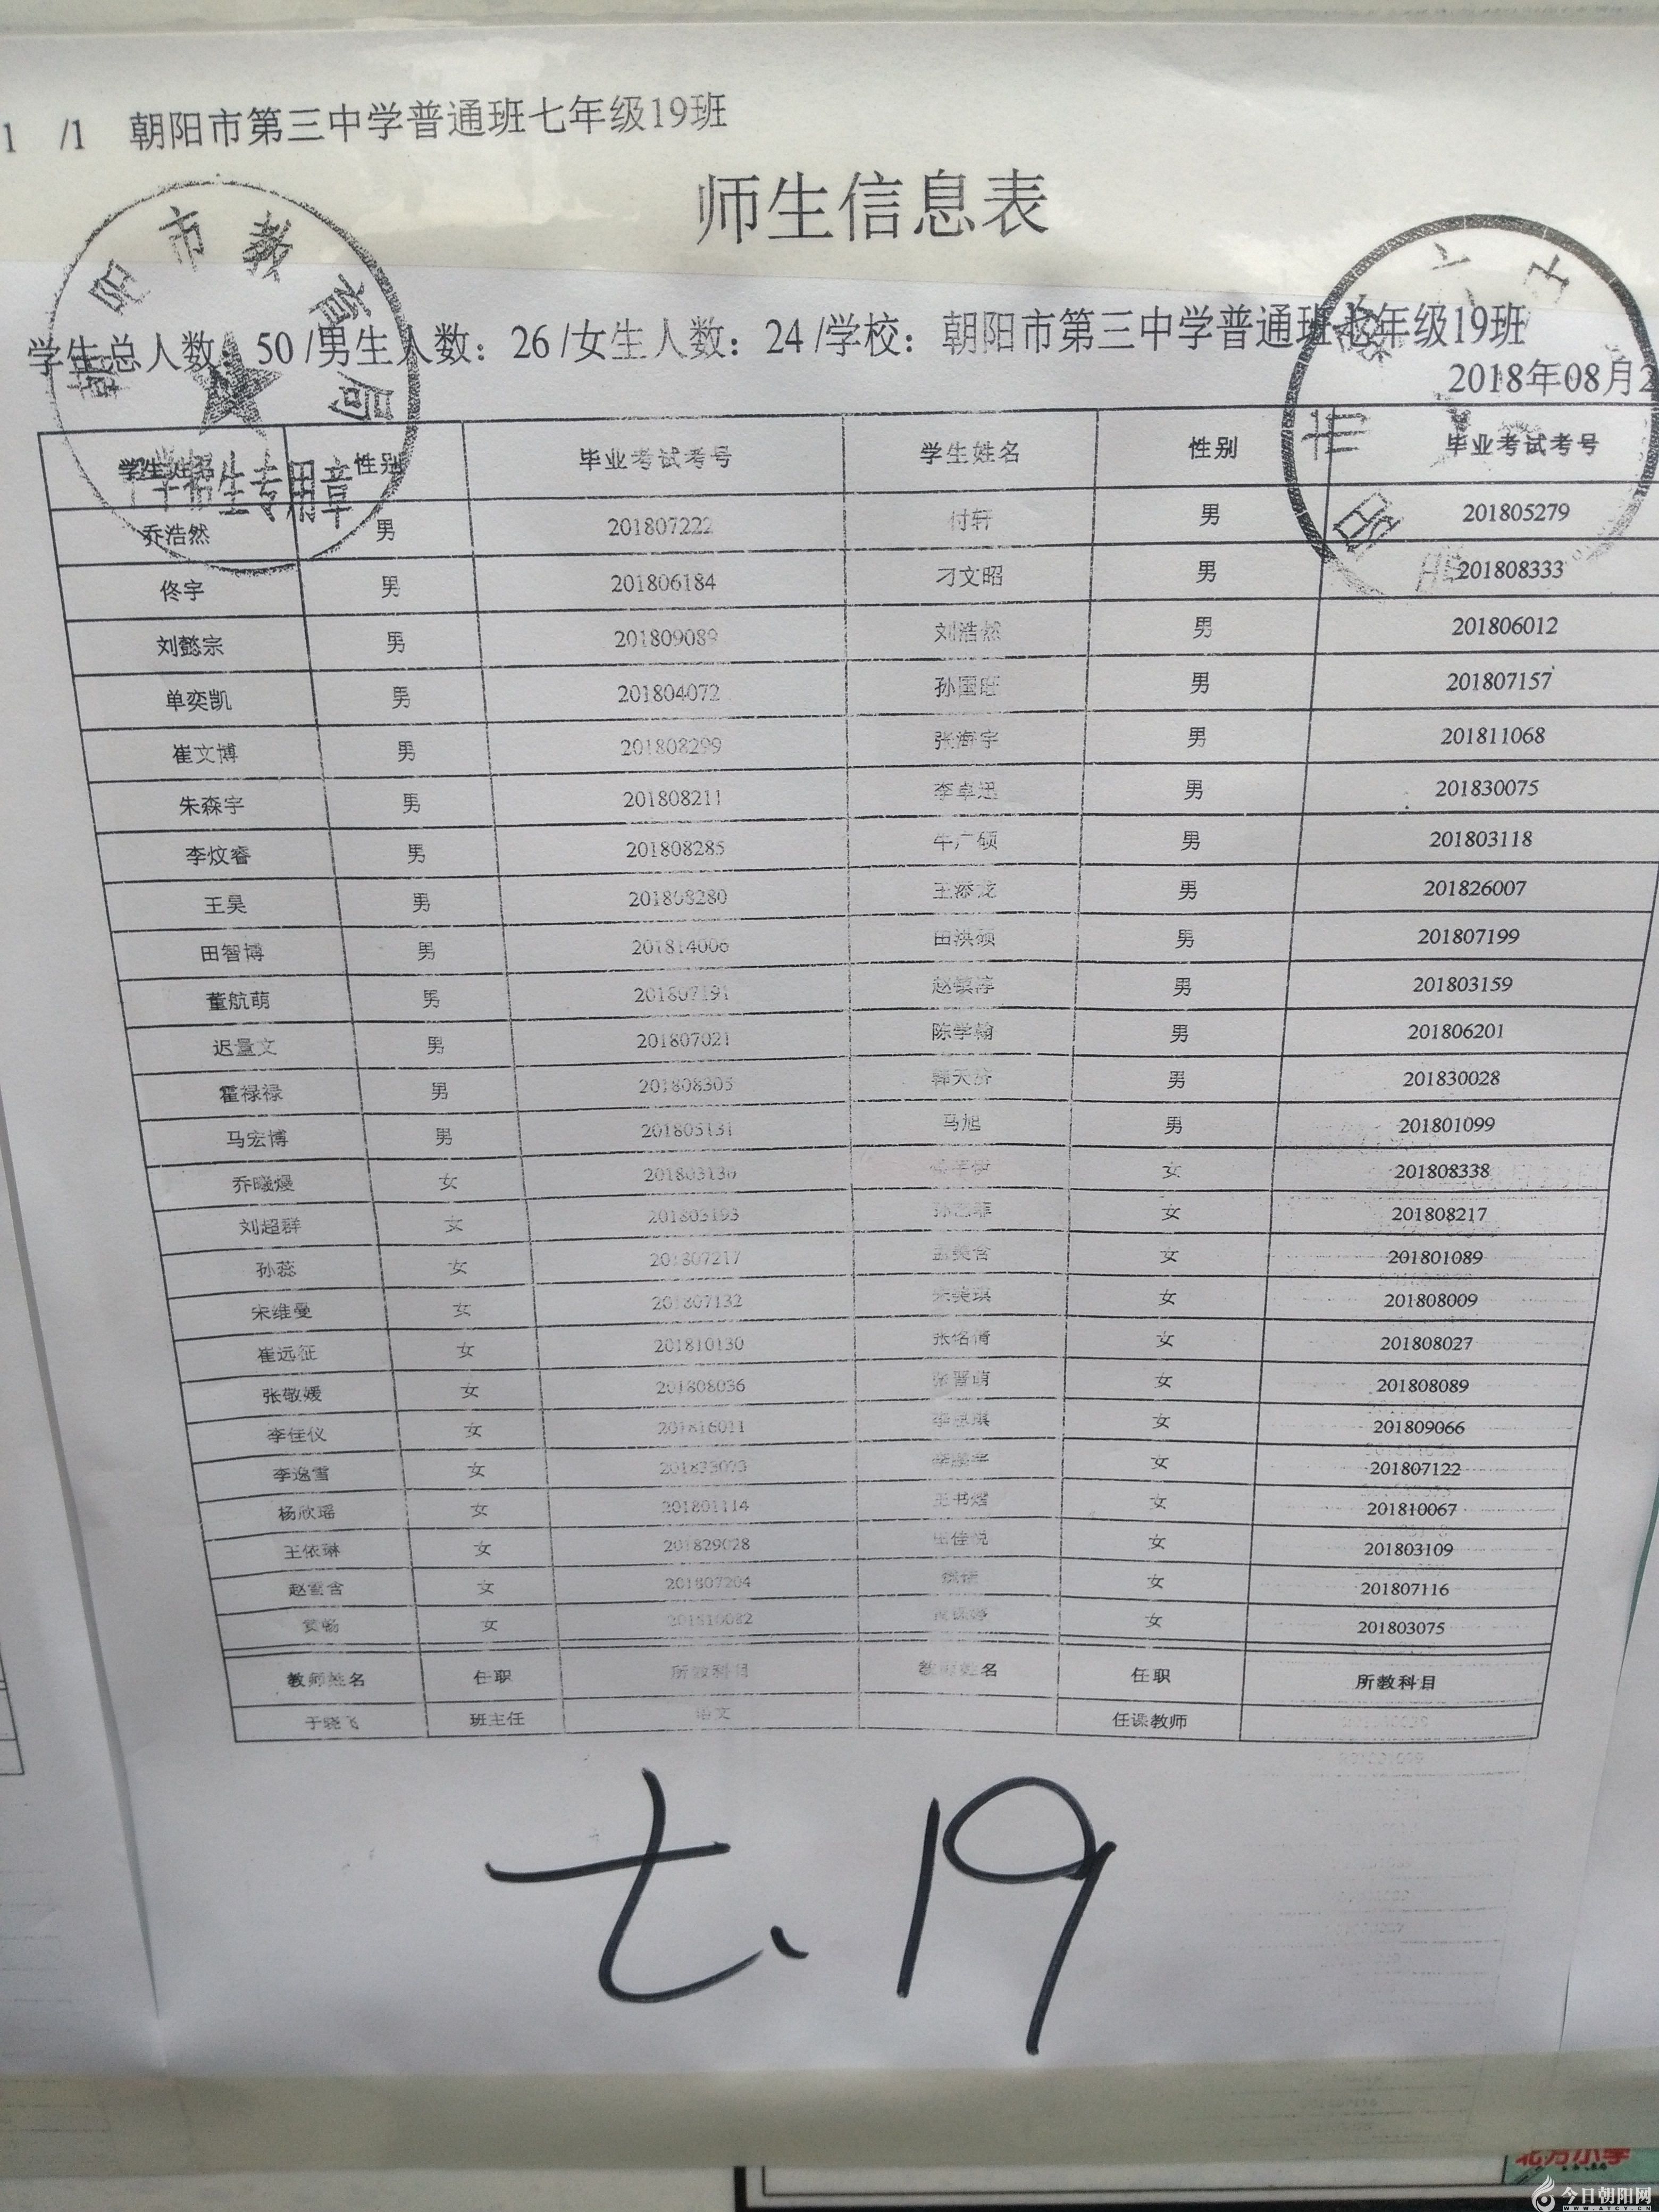 1 /1 朝阳市第三中学普通班七年级19班
师生信息表
朝阳市教育局
学生总人数：50 /男生人数：26 /女生人数：24 /学校：朝阳市第三中学普通班七年级19班
2018年08月2
学生姓名 性别 毕业考试考号 学生姓名 性别 毕业考试考号
招生专用章
乔浩然 男 201807222 付轩 男 201805279
佟宇 男 201806184 刁文昭 男 201808333
刘懿宗 男 201809089 刘浩然 男 201806012
单奕凯 男 201804072 孙国旺 男 201807157
崔文博 男 201808299 张海宇 男 201811068
朱森宇 男 201808211 李卓迅 男 201830075
李炆睿 男 201808285 牛广硕 男 201803118
王昊 男 201808280 王添龙 男 201826007
田智博 男 201814006 田洪硕 男 201807199
董航萌 男 201807191 赵镇淳 男 201803159
迟量文 男 201807021 陈学翰 男 201806201
霍禄禄 男 201808305 男 201830028
马宏博 男 201803131 马旭 男 201801099
乔曦熳 女 201803136 女 201808338
刘超群 女 201803193 女 201808217
孙蕊 女 201807217 孟美含 女 201801089
宋维曼 女 201807132 女 201808009
崔远征 女 201810130 张铭倩 女 201808027
张敬媛 女 201808036 张晋萌 女 201808089
李佳仪 女 201816011 女 201809066
李逸雪 女 女 201807122
杨欣瑶 女 201801114 王书熠 女 201810067
王依琳 女 201829028 女 201803109
赵萱含 女 201807204 女 201807116
女 201810082 女 201803075
教师姓名 任职 所教科目 教师姓名 任职 所教科目
于晓飞 班主任 语文 任课教师
七、19
北方小学
今日朝阳网
WWW.ATCY.CN